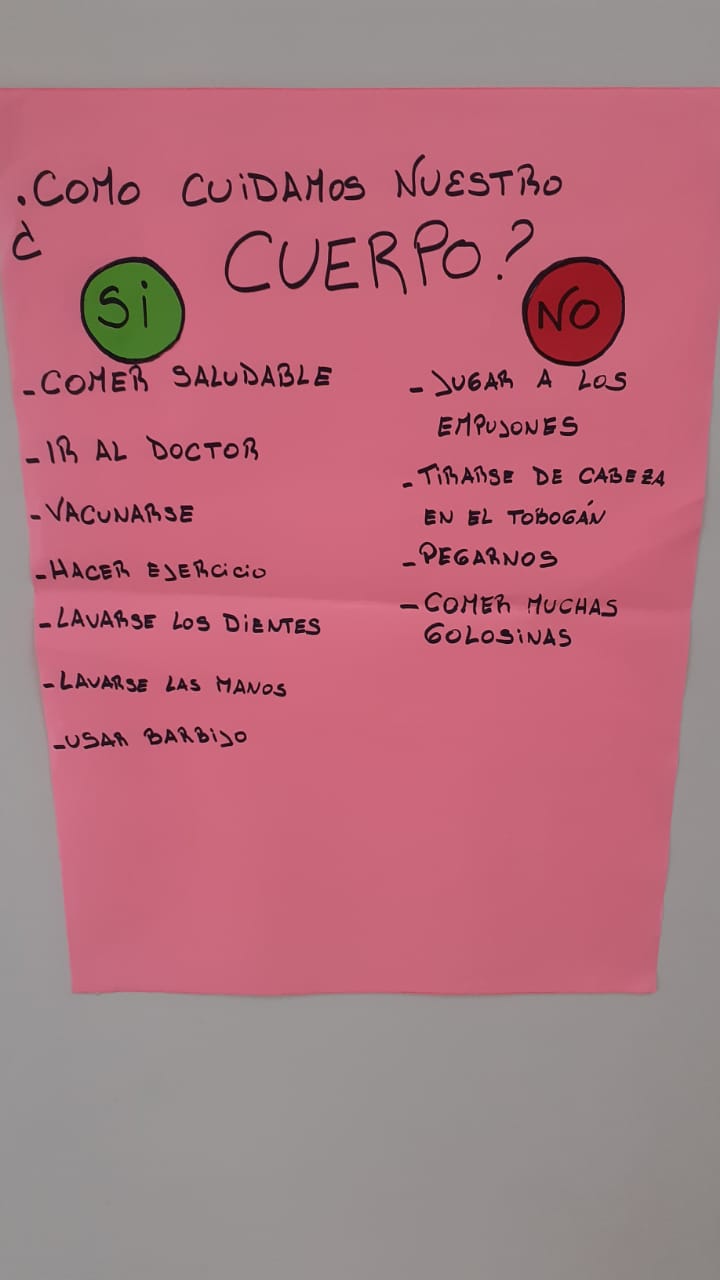 ¿COMO CUIDAMOS NUESTRO
CUERPO?
SI
- COMER SALUDABLE
- IR AL DOCTOR
- VACUNARSE
- HACER EJERCICIO
- LAVARSE LOS DIENTES
- LAVARSE LAS MANOS
- USAR BARBIJO
NO
- JUGAR A LOS
EMPUJONES
- TIRARSE DE CABEZA
EN EL TOBOGÁN
- PEGARNOS
- COMER MUCHAS
GOLOSINAS